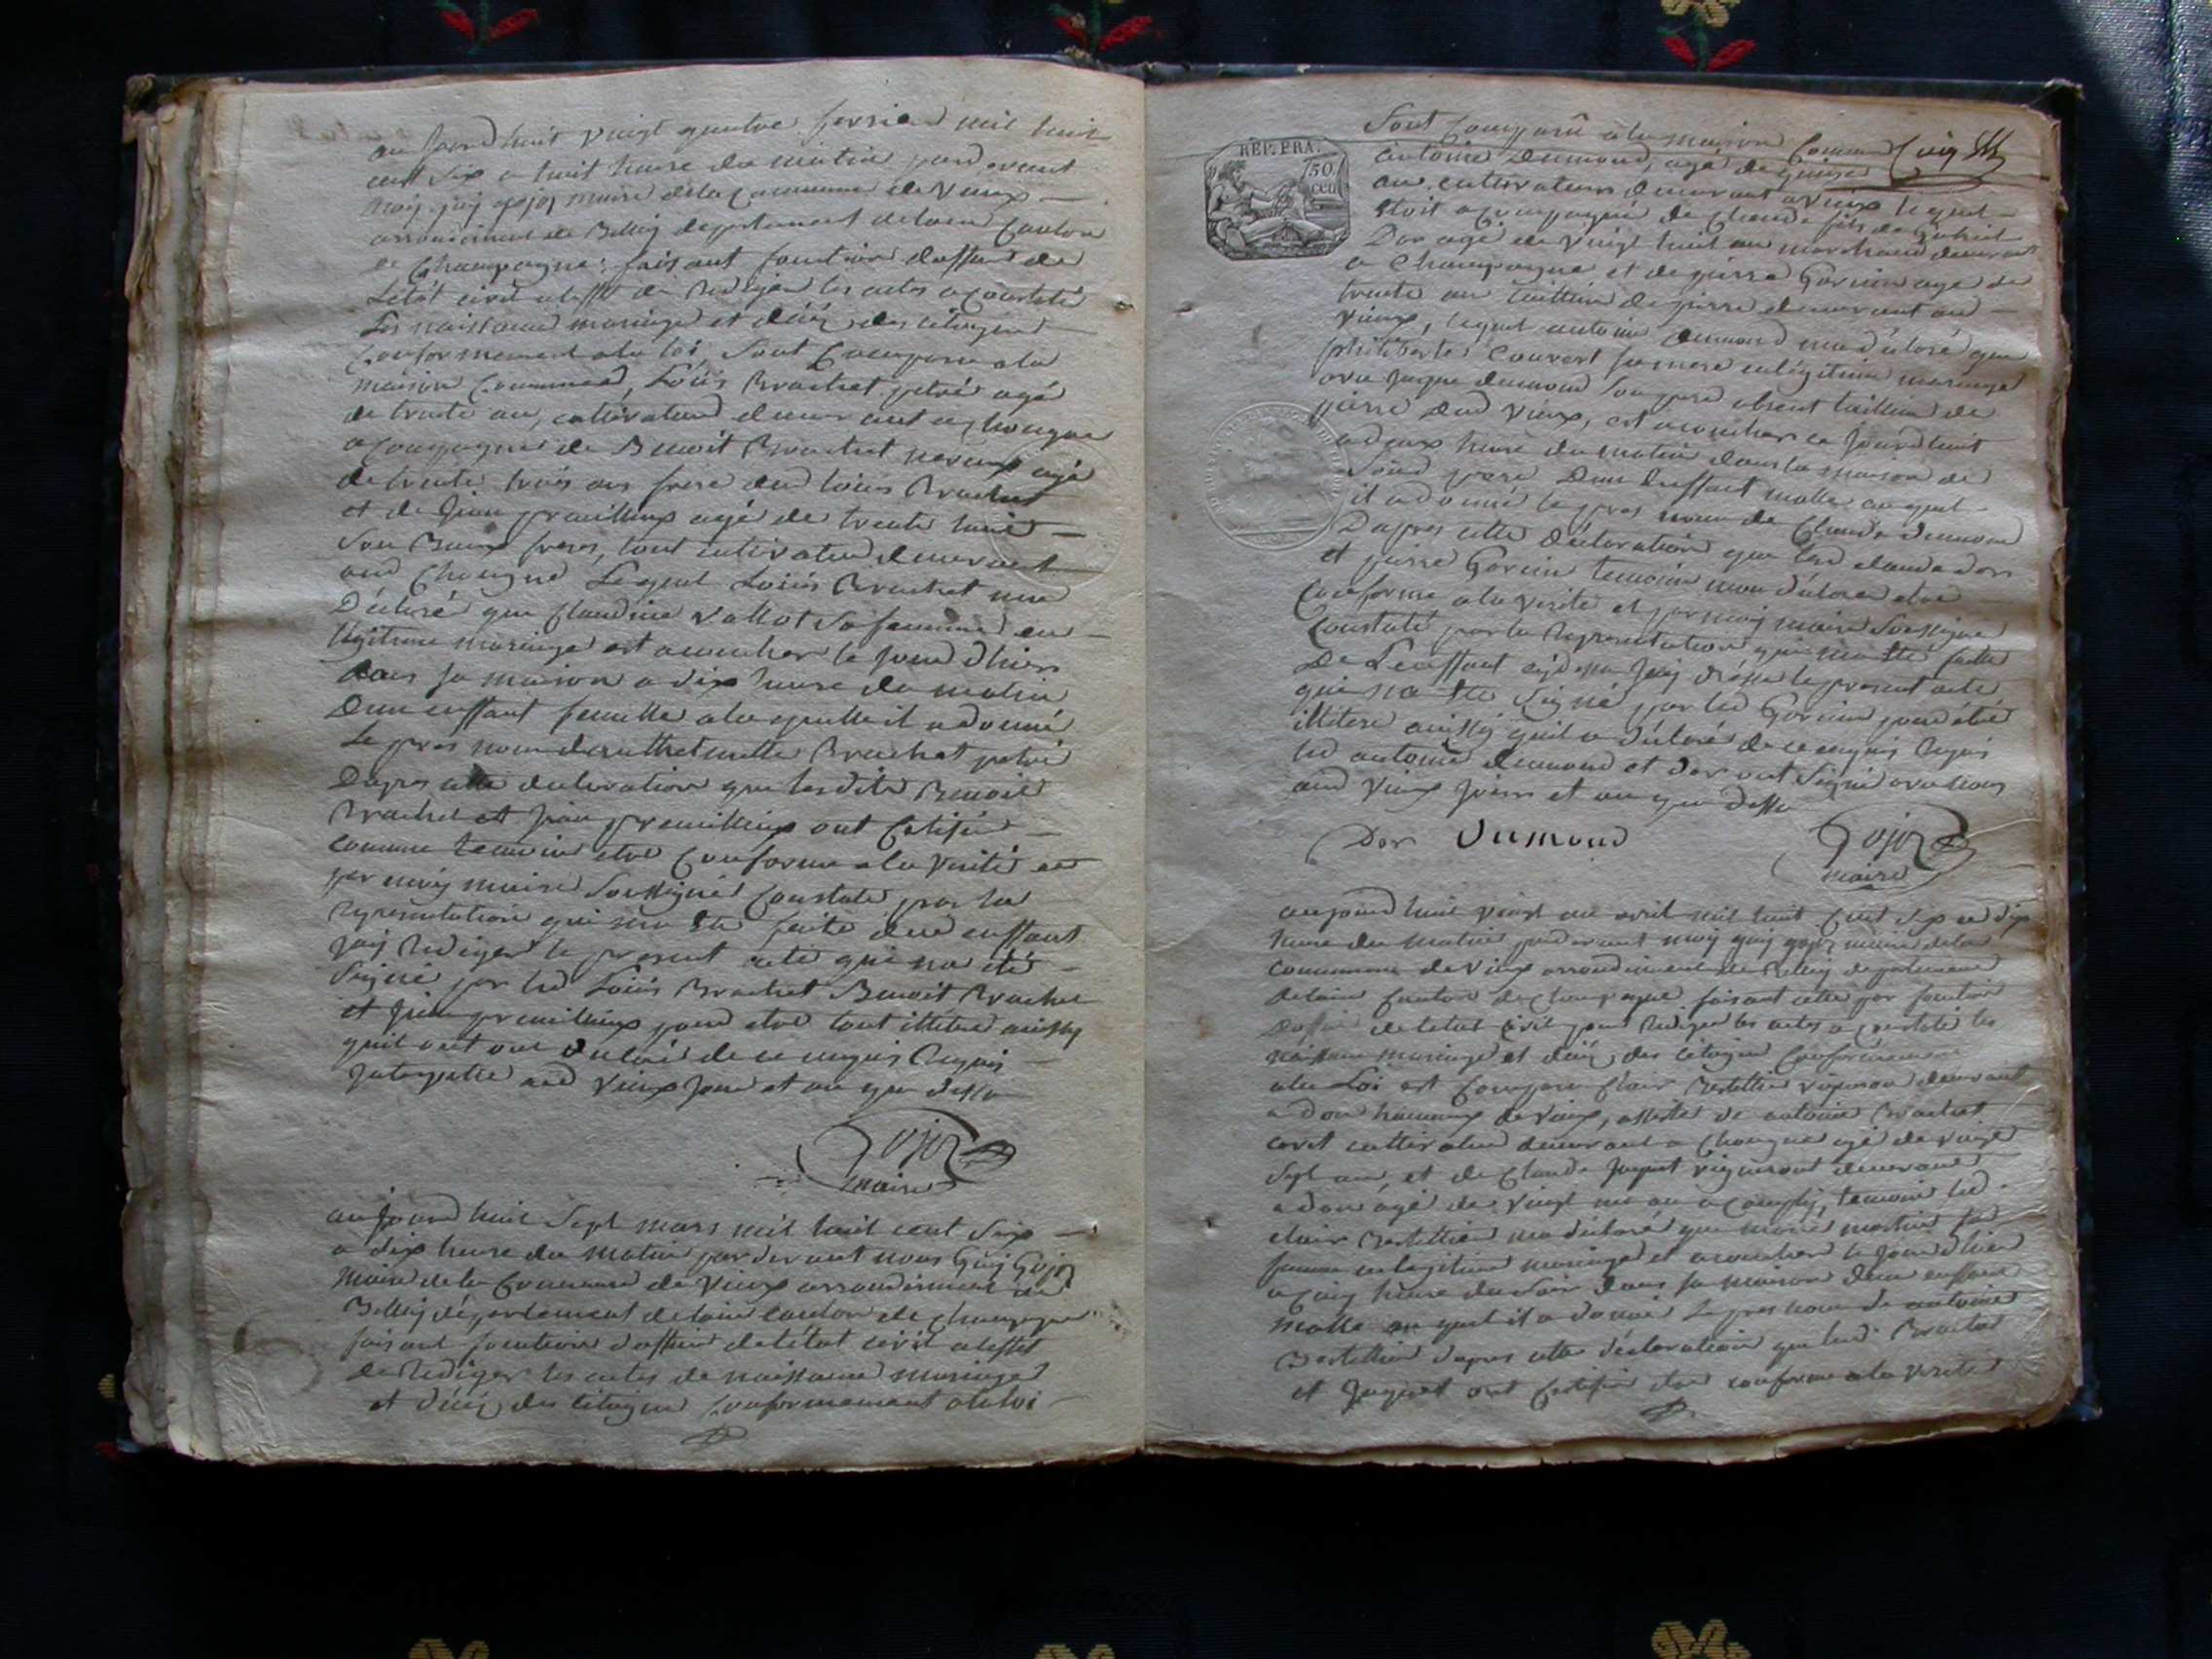 au jourd huit vingt quatre fevrier mil huit
cent six a huit heure du matin pard avant
moy guy gojoz maire dela Commune de Vieux
arrondiment de Belley departement delain Canton
de Champagne, faisant fonction dofficier de
Létat civil a leffet de Rediger les actes a Constaté
Les naissance mariage et décéz des citoyens
Conformement ala loi, Sont Comparu ala
maison Commune, Loüis Brachet petré agé
de trente ans, cultivateur demeurant a Chongne
acompagné de Benoit Brachet agé
de trente trois ans frere dud Loüis Brachet
et de agé de trente huit
Son Beaux freres, tout cultivateur demeurant
aud Chongne Lequel Loüis Brachet ma
Déclaré que Claudine Vallot Sa femme en
légitime mariage est acoucher le jour dhiers
dans sa maison a dix heure du matin
Dun enffant femelle ala quelle il a donné
Le pres nom Brachet petré
Dapres cette declaration que lesdits Benoit
Brachet et ont Certifié
comme temoin etre Conforme ala Verité et
par moy maire Soussigné Constaté par la
Representation qui ma Eté faite dud enffant
jay Rediger le present acte qui na été
Signé par led Loüis Brachet Benoit Brachet
et pour etre tout illiteré ainssy
quil ont déclaré de ce enquis Requis
aud Vieux jour et an que dessu
Gojoz
maire
aujourd huit Sept mars mil huit cent Six
a dix heure du matin par devant nous Guy Gojoz
Maire de la Commune de Vieux arrondiment de
Belley département delain canton de Champagne
faisant fonction dofficier de létat civil a leffet
de Rediger les actes de naissance mariage
et décéz des citoyens Conformement ala loi
REP. FRA.
50
cen
Sont Comparû ala maison Commune
antoine Dumond, agé de
ans cultivateur demeurant a Vieux lequel
étoit acompagné de Claude fils de Gabriel
Dor agé de Vingt huit ans marchand demeurant
a Champagne et de pierre Gorin agé de
trente ans tallieur de pierre demeurant aud
Vieux, lequel antoine Dumond ma déclaré que
philiberte Couvert sa mere en légitime mariage
avec jaque dumond Son pere absent tallieur de
pierre dud Vieux, est acoucher ce jourd huit
a deux heure du matin dans la maison de
Soud pere Dun Enffant malle au quel
il a donné le pres nom de Claude dumond
Dapres cette déclaration que led claude dor
et pierre Gorin temoin mon déclaré etre
Conforme ala verité et par moy maire Soussigné
Constaté par la Representation qui ma Eté faite
De Lenffant cydessu jay dressé le present acte
qui na Eté Signé par led Gorin pour étré
illiteré ainssy quil a déclaré de ce enquis Requis
led antoine dumond et dor ont Signé avec nous
aud Vieux jours et an que dessu
Dor Dumond
Gojoz
maire
aujourd huit vingt un avril mil huit Cent Six a dix
heure du matin pard avant moy guy gojoz maire dela
Commune de Vieux arrondiment de Belley departement
delain Canton de Champagne faisant
Dofficier de letat Civil pour Rediger les actes a Constaté les
naissance mariage et décéz des citoyens Conformement
ala Loi est Comparu Clair Bertellier vigneron demeurant
a Don hameaux de Vieux, assisté de antoine Brachet
cultivateur demeurant a Chongne agé de vingt
Sept ans, et de Claude Juget vigneront demeurant
a don agé de Vingt un an acomply, temoin led
clair Bertellier ma déclaré que marie martin Sa
femme en legitime mariage et acoucher le jour dhier
a Cinq heure du Soir dans sa maison dun enffant
malle au quel il a donné Le pres nom de antoine
Bertellier dapres cette déclaration que led Brachet
et Juget ont Certifié etre conforme ala verité